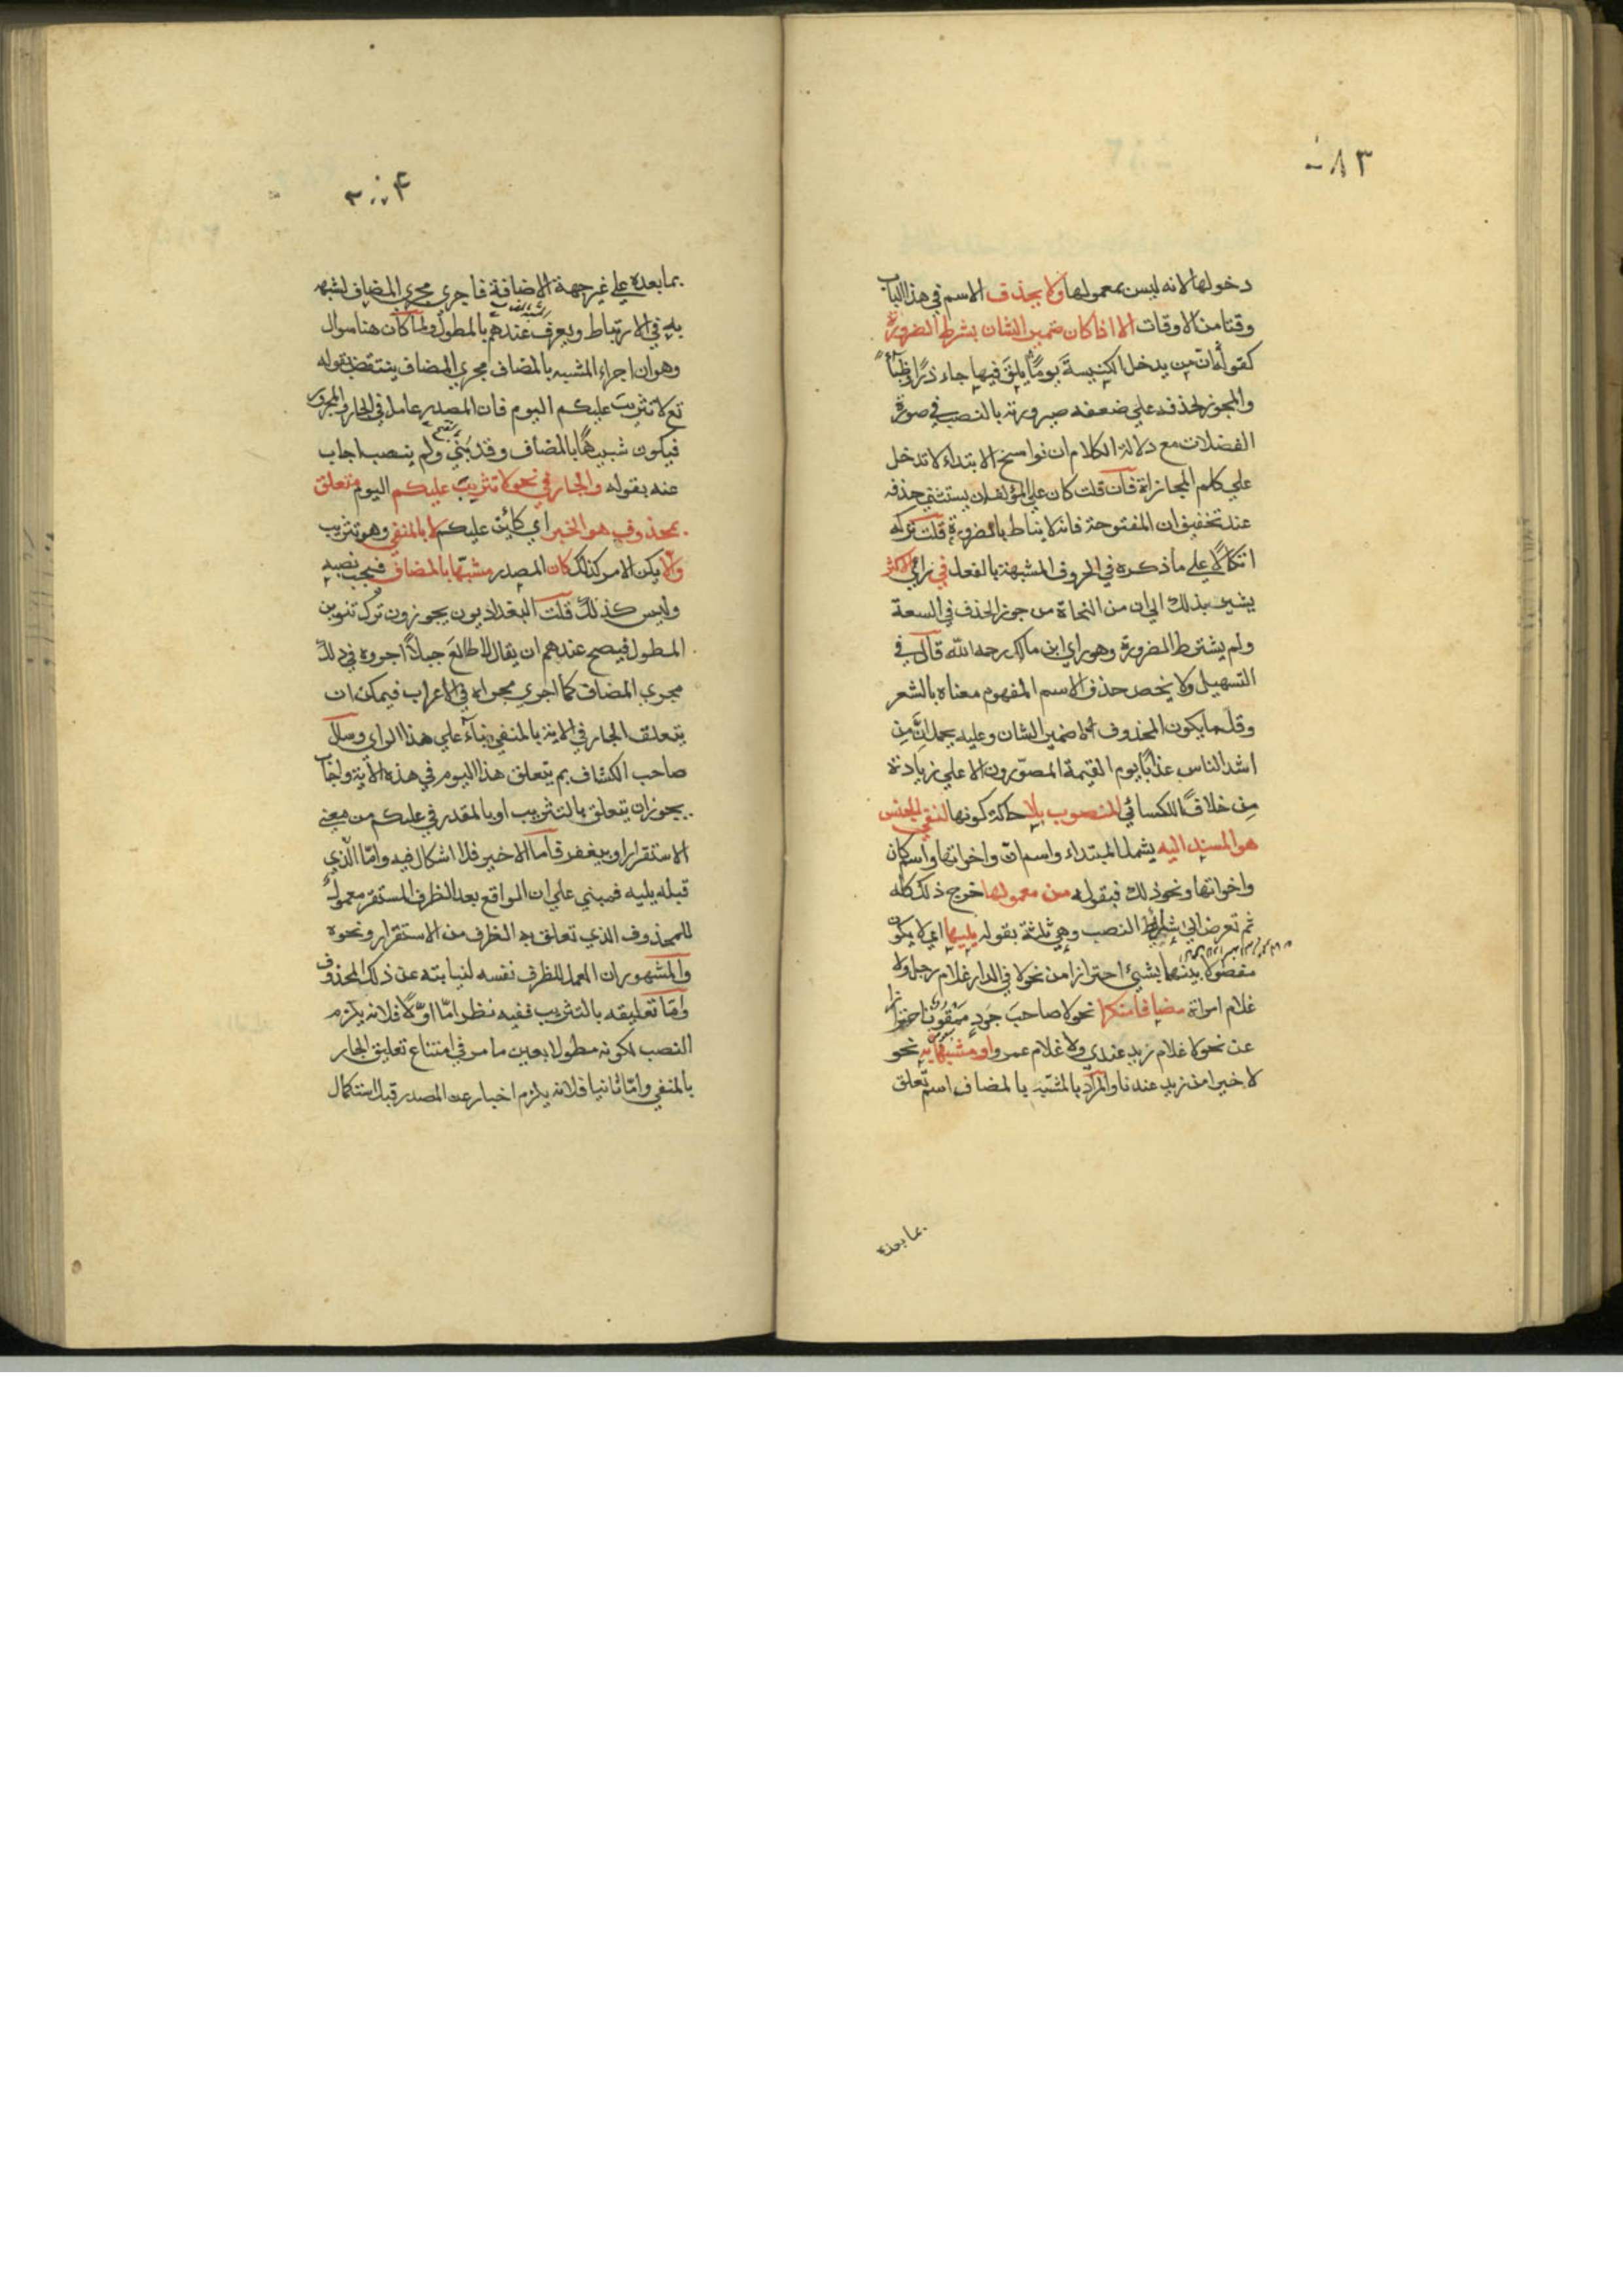 ٨٣
دخولها لانه ليس بمعمولها ولا يحذف الاسم في هذا الباب
وقتا من الاوقات الا اذا كان ضمير الشان بشرط الضرورة
كقوله ان من يدخل الكنيسة يوما يلق فيها جاءذرا وظباء
والمجوز لحذفه علي ضعفه صيرورته بالنصب في صورة
الفضلات مع دلالة الكلام ان نواسخ الابتداء لا تدخل
علي كلم المجازاة فان قلت كان علي المؤلف ان يستثني حذفه
عند تخفيف ان المفتوحة فانه لا يناط بالضرورة قلت تركه
اتكالا علي ما ذكره في الحروف المشبهة بالفعل في راي الاكثر
يشير بذلك الي ان من النحاة من جوز الحذف في السعة
ولم يشترط الضرورة وهو راي ابن مالك رحمه الله قال في
التسهيل ولا يخص حذف الاسم المفهوم معناه بالشعر
وقلما يكون المحذوف الا ضمير الشان وعليه يحمل ان من
اشد الناس عذابا يوم القيمة المصورون لا علي زيادة
من خلافا للكسائي المنصوب بلا حاكة كونها لنفي الجنس
هو المسند اليه يشمل المبتداء واسم ان واخواتها واسم كان
واخواتها ونحو ذلك فبقوله من معمولها خرج ذلك كله
ثم تعرض الي شرائط النصب وهي ثلثة بقوله يليها اي لا يكون
مفصولا بينهما بشيئ احترازا من نحو لا في الدار غلام رجل ولا
غلام امراة مضافا منكرا نحو لا صاحب جود ممقوت احترازا
عن نحو لا غلام زيد عندي ولا غلام عمرو او مشبها به نحو
لا خيرا من زيد عندنا والمراد بالمشبه بالمضاف اسم تعلق
بما بعده
بما بعده علي غير جهة الاضافة فاجري مجري المضاف لشبهه
به في الارتباط ويعرف عندهم بالمطول ولما كان هنا سوال
وهو ان اجراء المشبه بالمضاف مجري المضاف ينتقض بقوله
تع لا تثريب عليكم اليوم فان المصدر عامل في الجار والمجرور
فيكون شبيها بالمضاف وقد بني ولم ينصب اجاب
عنه بقوله والجار في نحو لا تثريب عليكم اليوم متعلق
بمحذوف هو الخبر اي كائن عليكم لا بالمنفي وهو تثريب
والا يكن الامر كذلك كان المصدر مشبها بالمضاف فيجب نصبه
وليس كذلك قلت البغداديون يجوزون ترك تنوين
المطول فيصح عندهم ان يقال لا طالع جبلا اجروه في ذلك
مجري المضاف كما اجري مجراه في الاعراب فيمكن ان
يتعلق الجار في الاية بالمنفي بناء علي هذا الراي وسئل
صاحب الكشاف بم يتعلق هذا اليوم في هذه الاية واجاب
يجوز ان يتعلق بالتثريب او بالمقدر في عليكم من معني
الاستقرار او بيغفر قاما الاخير فلا اشكال فيه واما الذي
قبله يليه فمبني علي ان الواقع بعد الظرف المستقر معمول
للمحذوف الذي تعلق به الظرف من الاستقرار ونحوه
والمشهور ان العمل للظرف نفسه لنيابته عن ذلك المحذوف
واما تعليقه بالتثريب ففيه نظر اما اولا فلانه يلزم
النصب لكونه مطولا بعين ما مر في امتناع تعليق الجار
بالمنفي واما ثانيا فلانه يلزم اخبار عن المصدر قبل استكمال